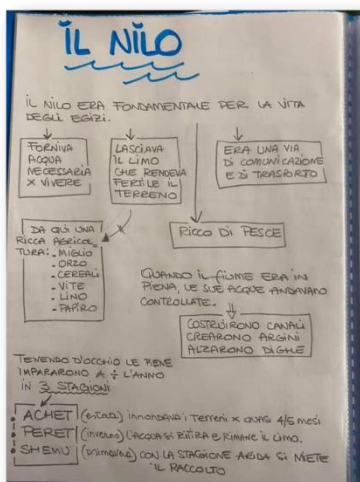 IL NILO
IL NILO ERA FONDAMENTALE PER LA VITA
DEGLI EGIZI.
FORNIVA
ACQUA
NECESSARIA
X VIVERE
LASCIAVA
IL LIMO
CHE RENDEVA
FERTILE IL
TERRENO
ERA UNA VIA
DI COMUNICAZIONE
E DI TRASPORTO
DA QUI UNA
RICCA AGRICOL
TURA: - MIGLIO
- ORZO
- CEREALI
- VITE
- LINO
- PAPIRO
RICCO DI PESCE
QUANDO IL FIUME ERA IN
PIENA, LE SUE ACQUE ANDAVANO
CONTROLLATE.
COSTRUIRONO CANALI
CREARONO ARGINI
ALZARONO DIGHE
TENENDO D'OCCHIO LE PIENE
IMPARARONO A ÷ L'ANNO
IN 3 STAGIONI
ACHET (estate) INNONDAVA I TERRENI X QUASI 4/5 MESI
PERET (inverno) L'ACQUA SI RITIRA E RIMANE IL LIMO.
SHEMU (primavera) CON LA STAGIONE ARIDA SI MIETE
IL RACCOLTO